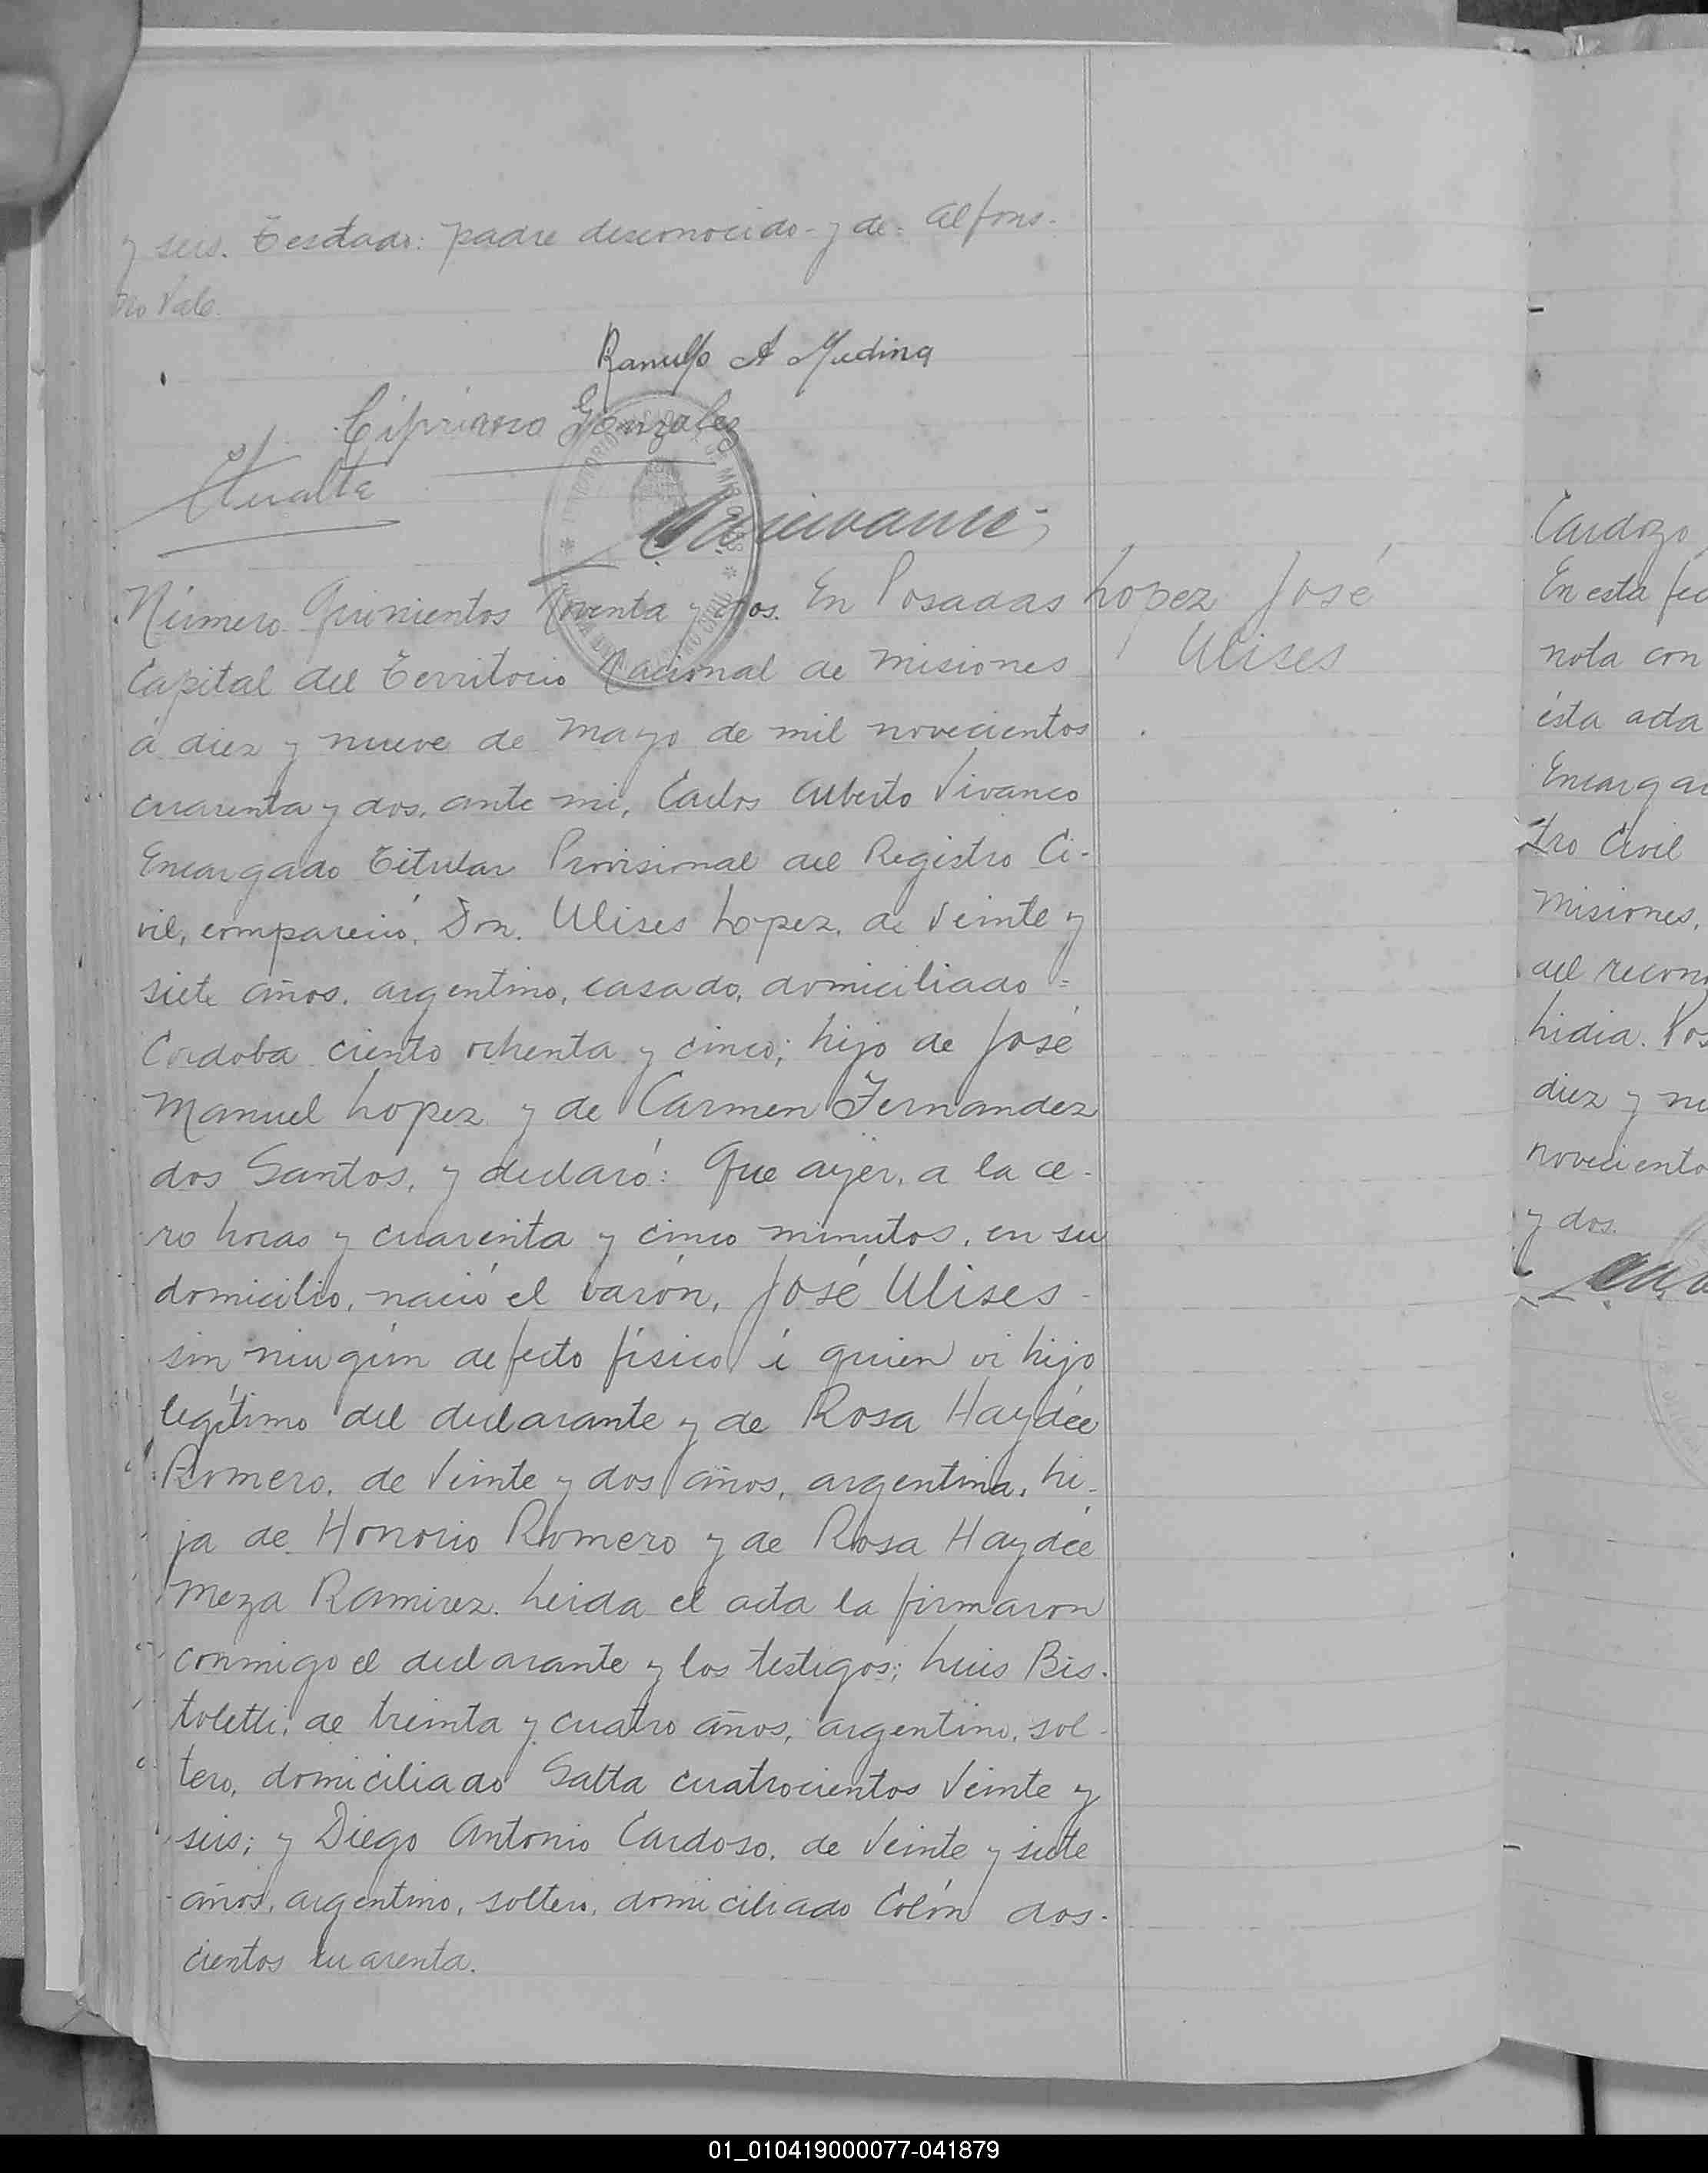 y seis. Testado: padre desconocido - y de = Alfons.
no Vale.
Ranulfo A Medina
Cipriano Gonzales
Número Quinientos noventa y dos. En Posadas
Capital del Territorio Nacional de Misiones
á diez y nueve de Mayo de mil novecientos
cuarenta y dos, ante mi, Carlos Alberto Vivanco
Encargado Titular Provisional del Registro Ci-
vil, compareció, Don. Ulises Lopez, de Veinte y
siete años, argentino, casado, domiciliado =
Cordoba ciento ochenta y cinco; hijo de José
Manuel Lopez y de Carmen Fernandez
dos Santos, y declaró: Que ayer, a la ce-
ro horas y cuarenta y cinco minutos, en su
domicilio, nació el varón, José Ulises -
sin ningún defecto físico, á quien vi hijo
legítimo del declarante y de Rosa Haydée
Romero, de Veinte y dos años, argentina, hi-
ja de Honorio Romero y de Rosa Haydée
Meza Ramirez. Leida el acta la firmaron
conmigo el declarante y los testigos; Luis Bis-
toletti, de treinta y cuatro años, argentino, sol-
tero, domiciliado Salta cuatrocientos Veinte y
seis; y Diego Antonio Cardoso, de Veinte y siete
años, argentino, soltero, domiciliado Colón dos-
cientos cuarenta.
Lopez José
Ulises
Cardozo
En esta fec
nota con
ésta acta
Encargar
tro Civil
Misiones,
del recono
hidia. Pos
diez y nu
noveciento
y dos.
01_010419000077-041879